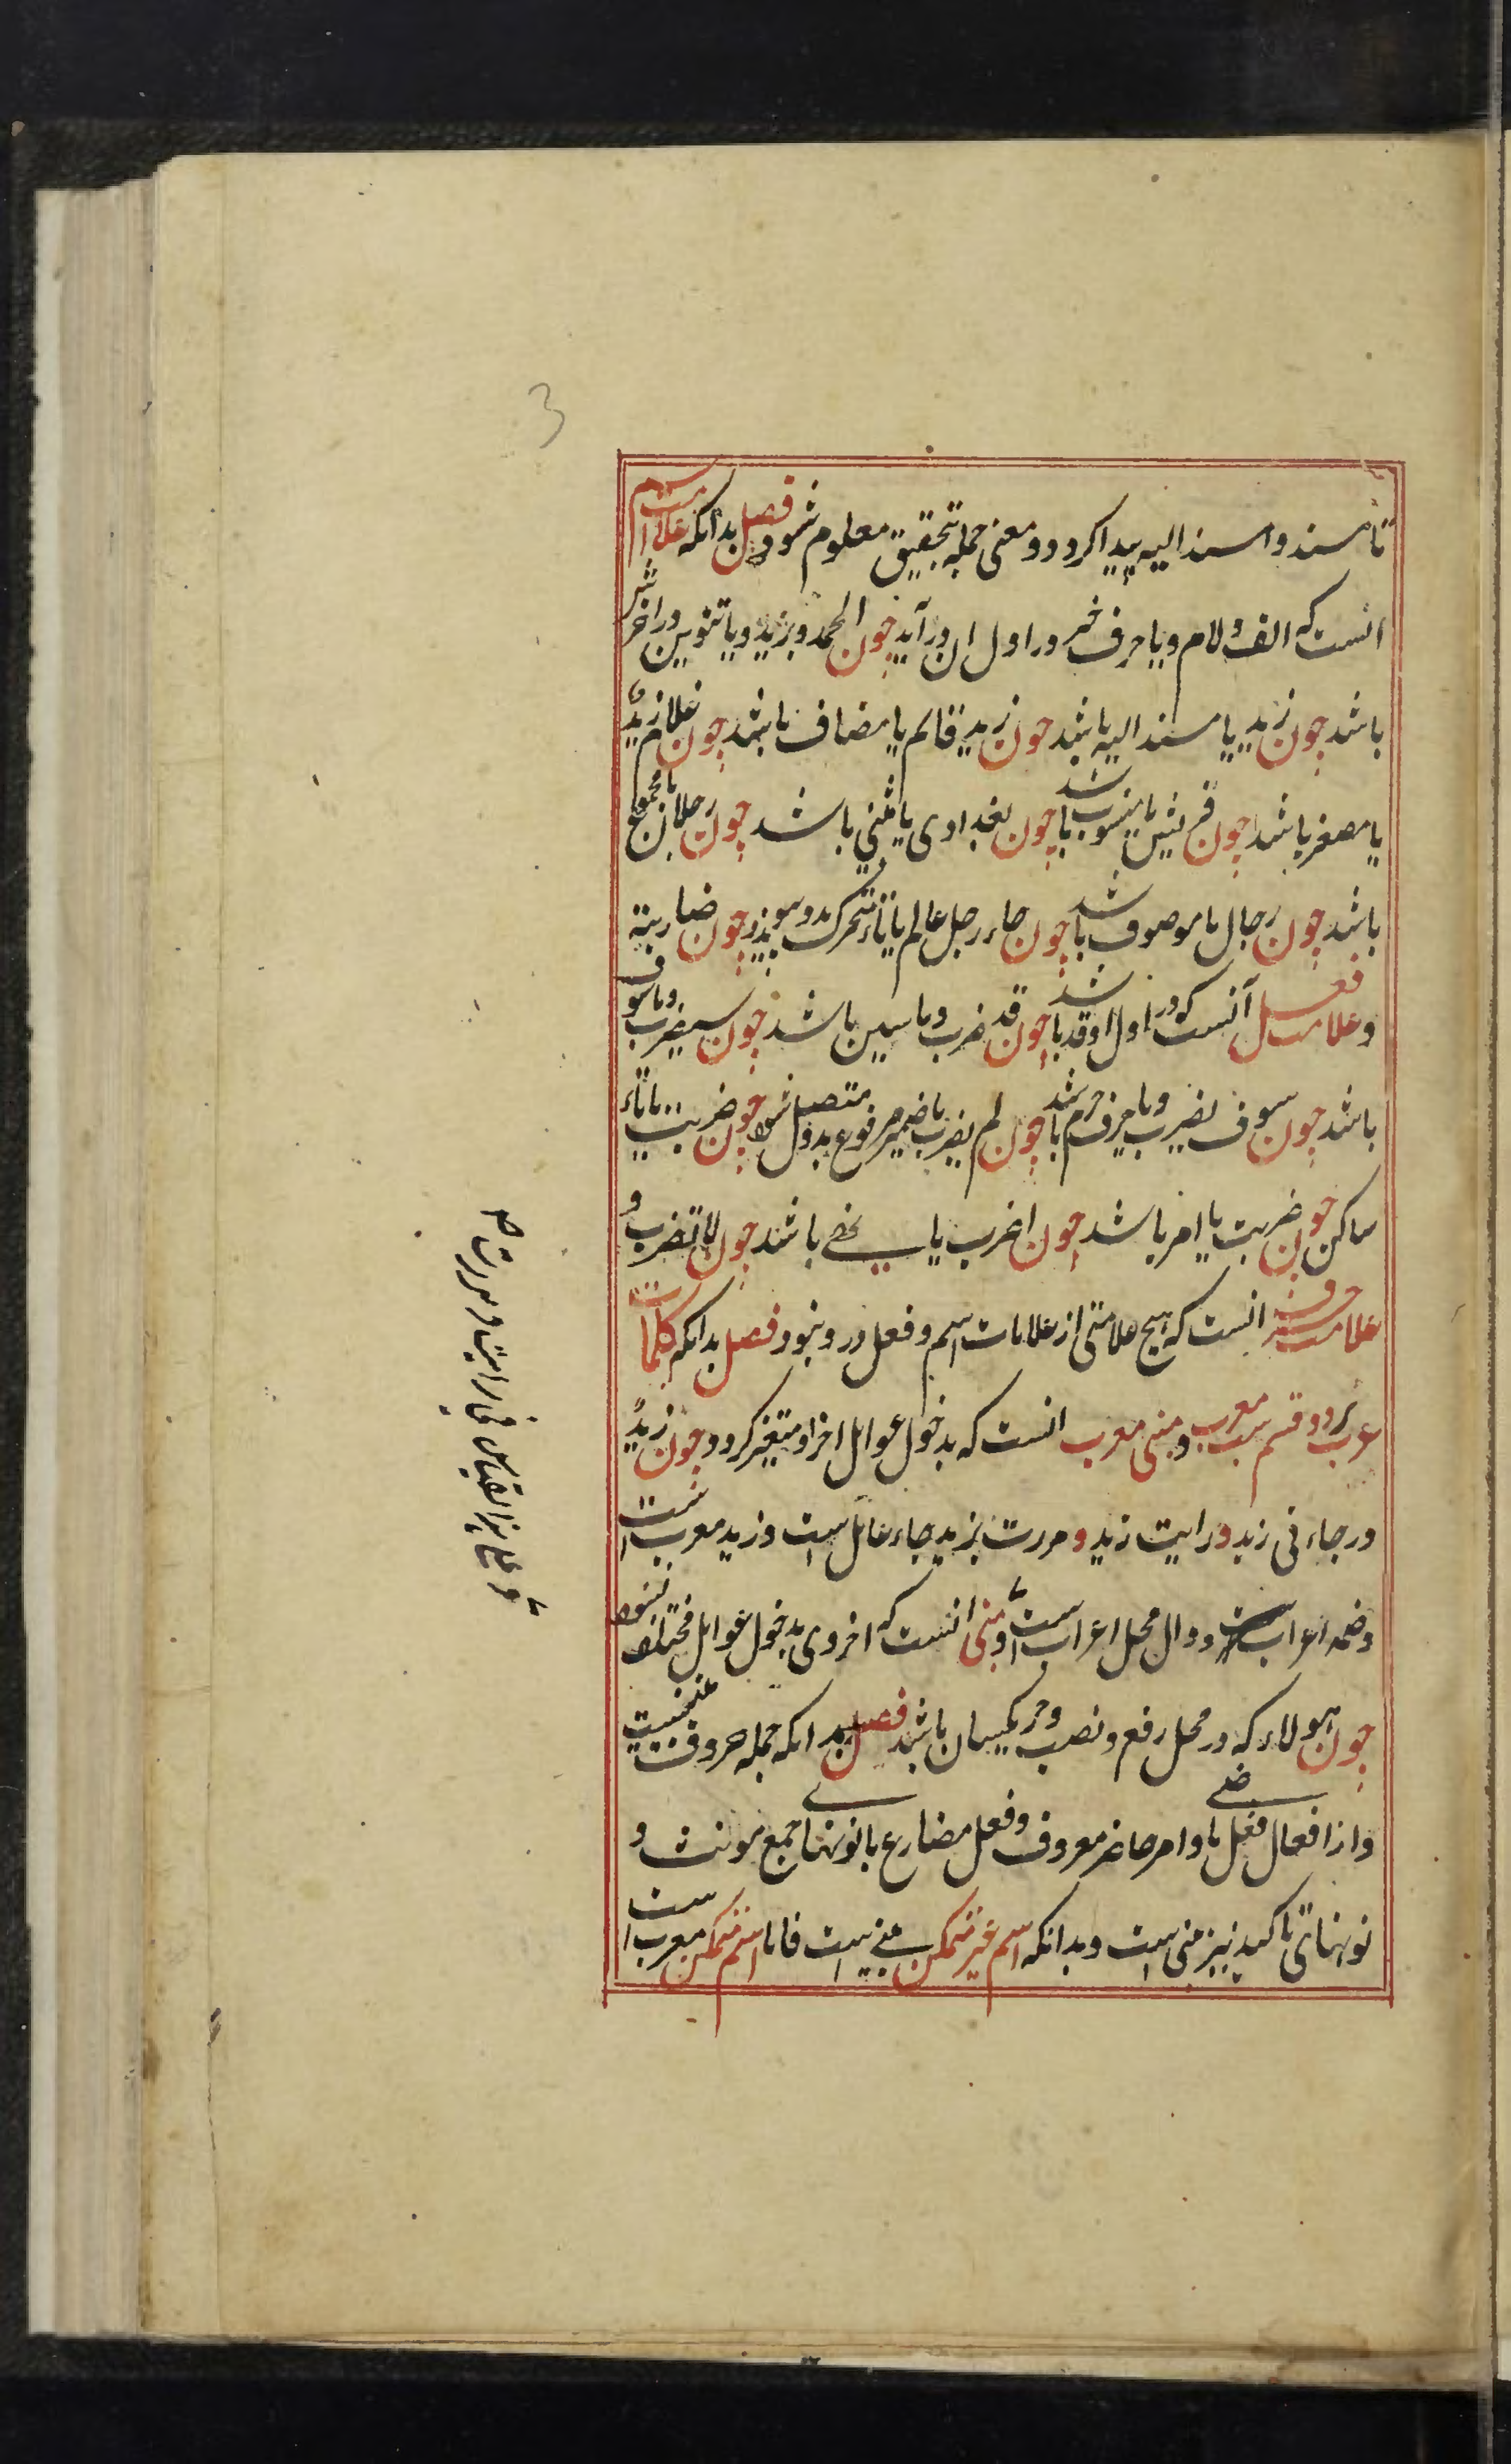 3
تا مسند و مسند الیه پیدا کردد و معنی جمله بتحقیق معلوم شود فصل بدانکه علامت اسم
انست که الف و لام و یا حرف جر در اول ان درآید چون الحمد و بزید و یا تنوین در اخرش
باشد چون زید یا مسند الیه باشد چون زید قائم یا مضاف باشد چون غلام زیدٍ
یا مصغر باشد چون قریش یا منسوب باشد چون بغدادی یا مثنی باشد چون رجلان یا مجموع
باشد چون رجال یا موصوف باشد چون جاء رجل عالم یا تاء متحرک بدو پیوندد چون ضاربة
و علامت فعل آنست که در اول او قد باشد چون قد ضرب و یا سین باشد چون سیضرب و یا سوف
باشد چون سوف یضرب و یا حرف جزم باشد چون لم یضرب یا ضمیر مرفوع بدو متصل شود چون ضربت یا تاء
ساکن چون ضربت یا امر باشد چون اضرب یا نهی باشد چون لا تضرب و
علامت حرف انست که هیچ علامتی از علامات اسم و فعل درو نبود فصل بدانکه کلمات
عرب بر دو قسم است معرب و مبنی معرب انست که بدخول عوامل اخر او متغیر کردد چون زیدٌ
در جاءنی زید و رایت زید و مررت بزید جاء عامل است و زید معرب است
و ضمه اعراب است و دال محل اعراب است و مبنی انست که اخر وی بدخول عوامل مختلف نشود
چون هولاء که در محل رفع و نصب و جر یکیسان باشد فصل بدانکه جمله حروف مبنیست
و از افعال فعل ماضی و امر حاضر معروف و فعل مضارع با نونهای جمع مونث و
نونهای تاکید نیز مبنی است و بدانکه اسم غیر متمکن مبنی است فاما اسم متمکن معرب است